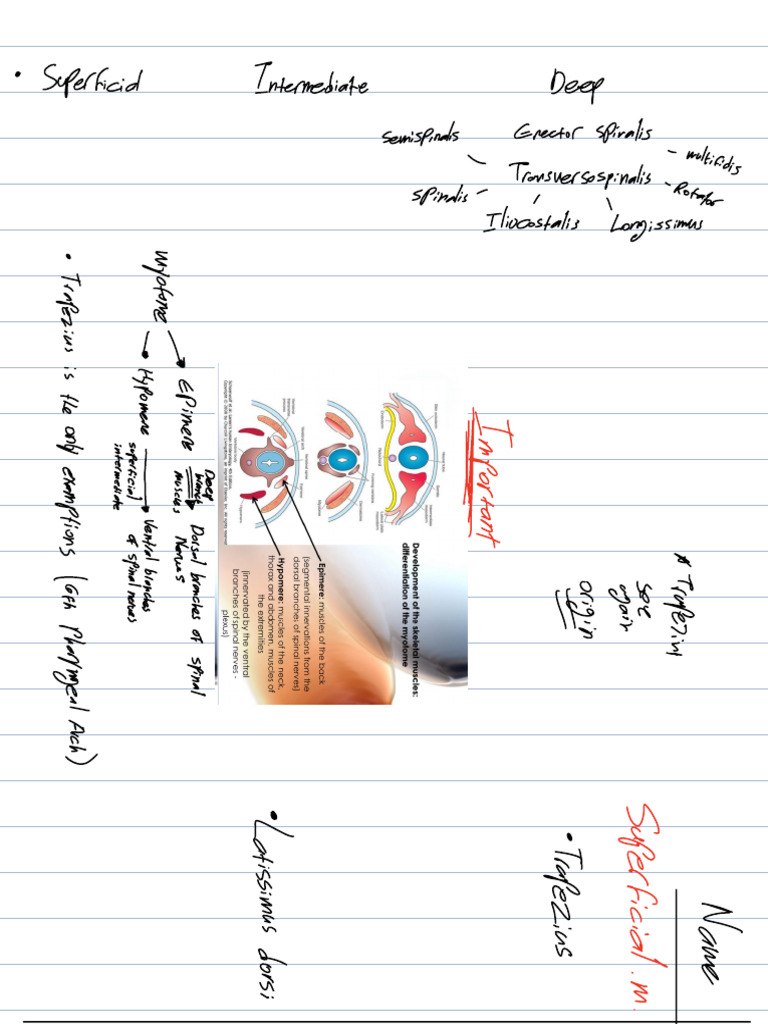 • Superficial Intermediate Deep
semispinals Erector spinalis
multifidis
Transversospinalis
Rotator
spinalis
Iliocostalis Longissimus
Important
Development of the skeletal muscles:
differentiation of the myotome
Epimere: muscles of the back
(segmental innervations from the
dorsal branches of spinal nerves)
Hypomere: muscles of the neck,
thorax and abdomen, muscles of
the extremities
(innervated by the ventral
branches of spinal nerves -
plexus)
Myotome
Epimere Deep back muscles Dorsal branches of spinal
Nerves
Hypomere superficial/
intermediate
Ventral branches
of spinal nerves
• Trapezius is the only exemptions (6th Pharyngeal Arch)
see
again
origin
Name
Superficial.m.
• Trapezius
• Latissimus dorsi